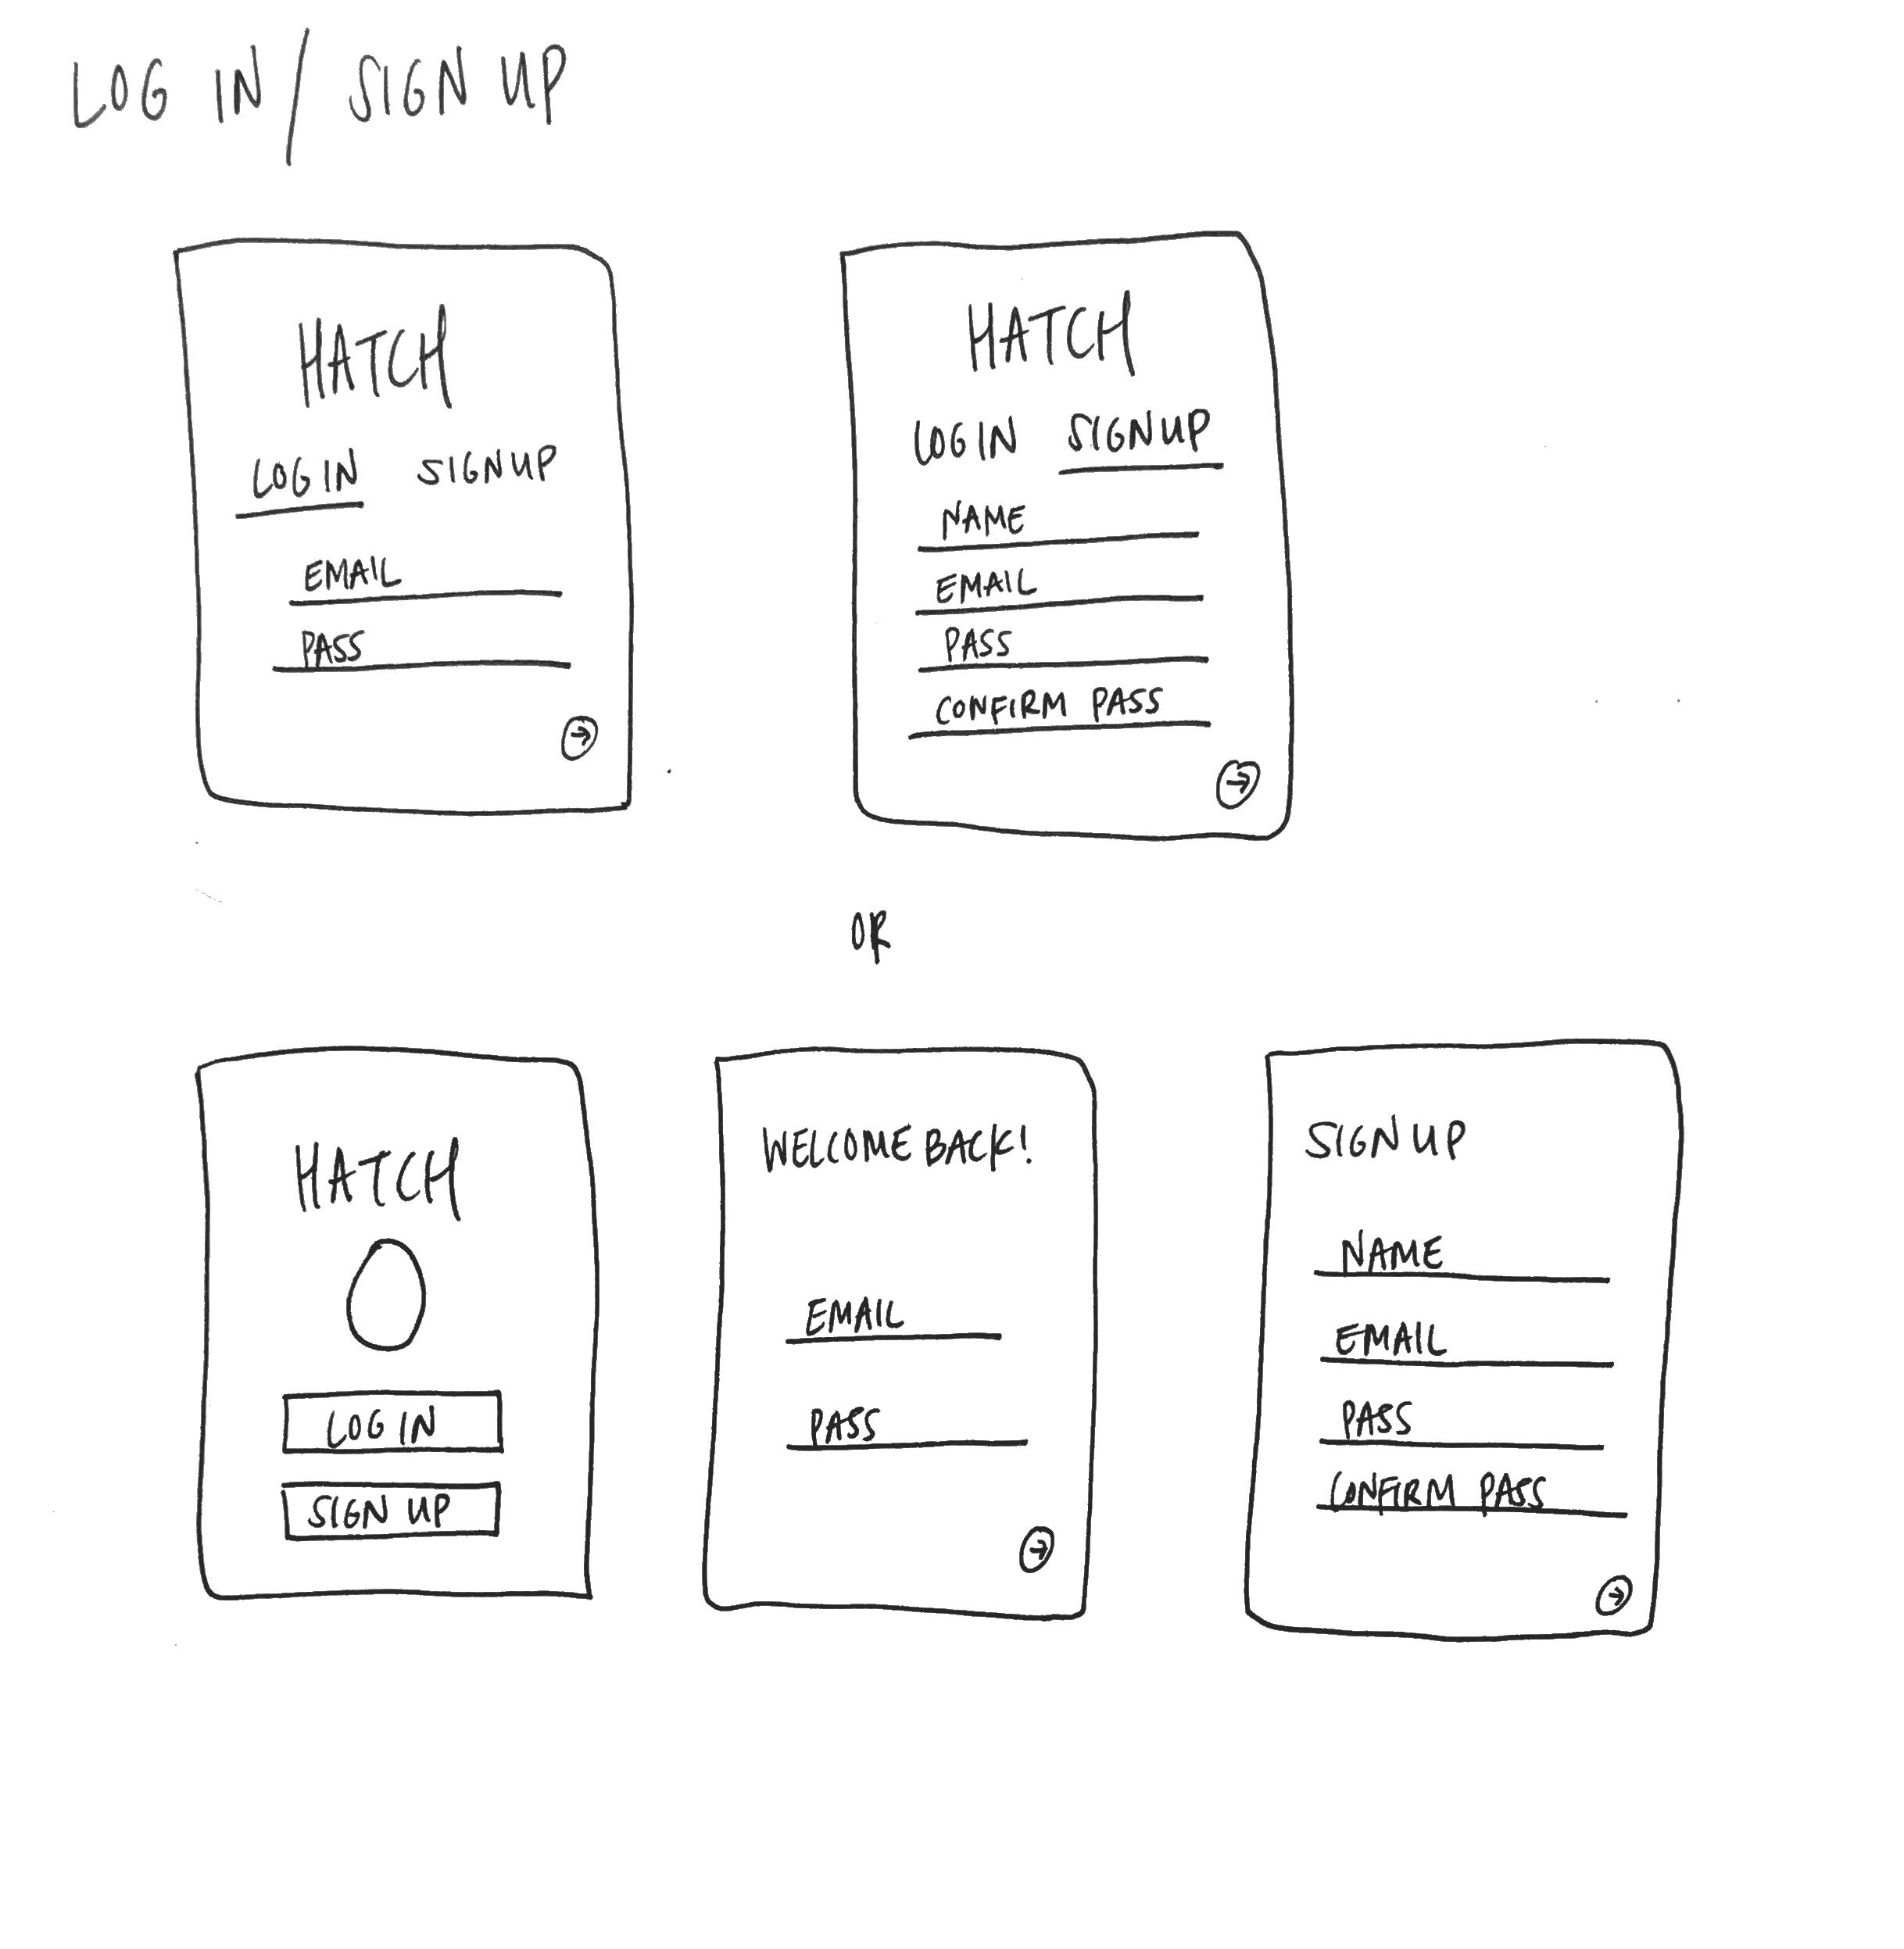 LOG IN / SIGN UP
HATCH
LOGIN SIGNUP
EMAIL
PASS
HATCH
LOGIN SIGNUP
NAME
EMAIL
PASS
CONFIRM PASS
OR
HATCH
LOG IN
SIGN UP
WELCOME BACK!
EMAIL
PASS
SIGN UP
NAME
EMAIL
PASS
CONFIRM PASS